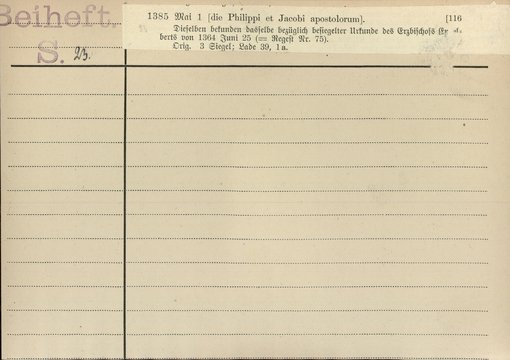 Beiheft,
S. 23.
1385 Mai 1 [die Philippi et Jacobi apostolorum]. [116
Dieselben bekunden dasselbe bezüglich besiegelter Urkunde des Erzbischofs
berts von 1364 Juni 25 (= Regest Nr. 75).
Orig. 3 Siegel; Lade 39, 1 a.